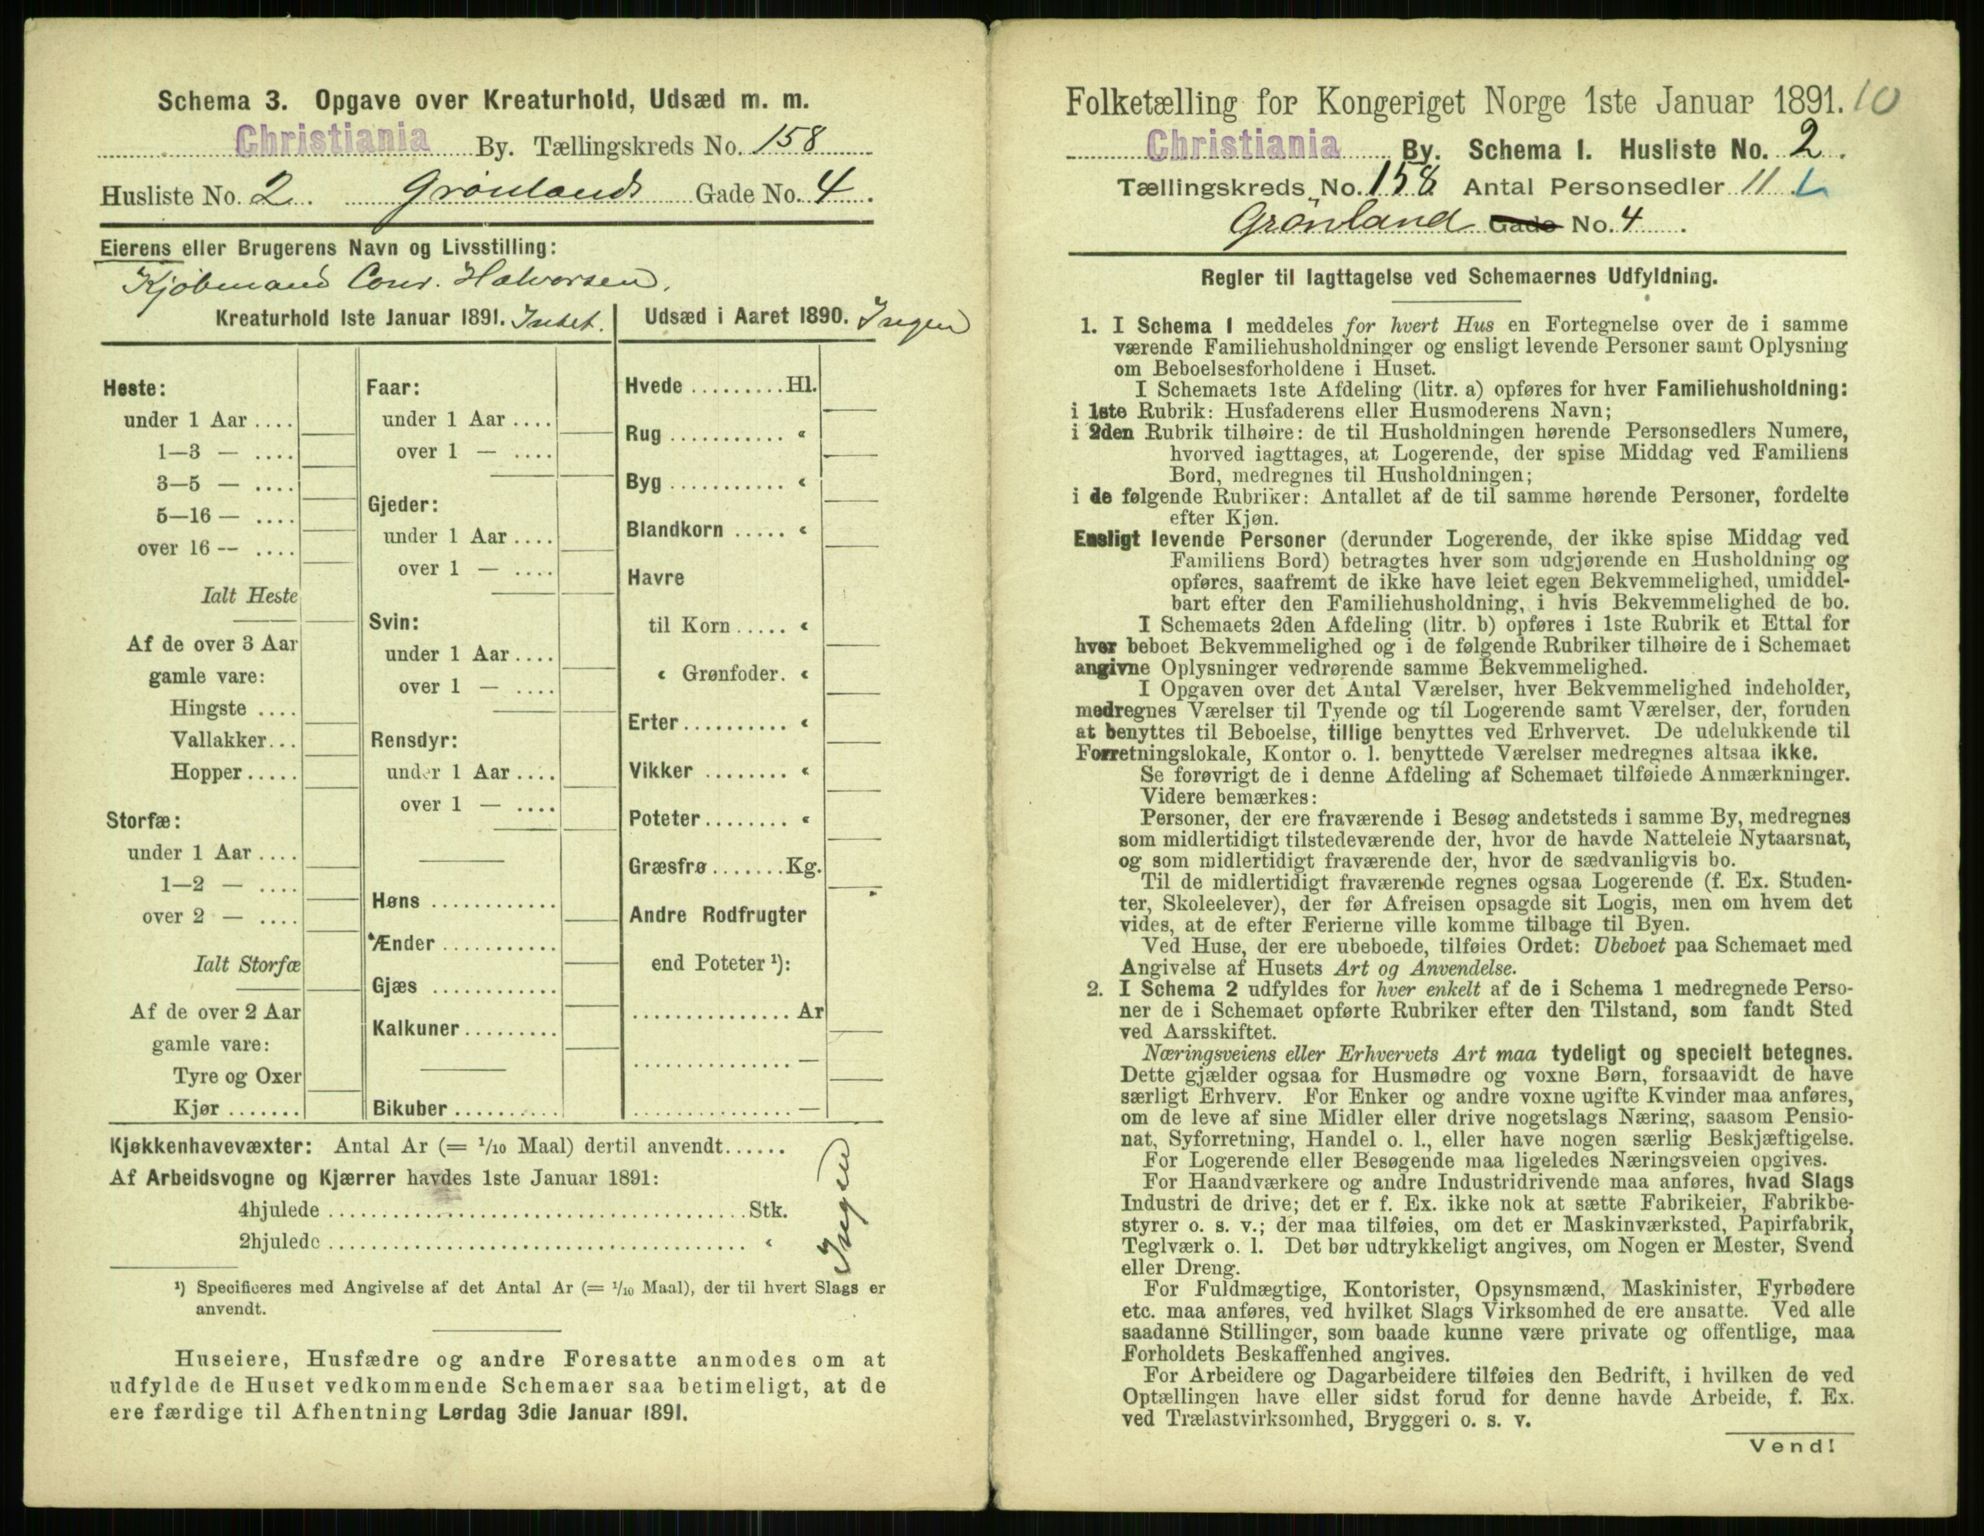 Schema 3. Opgave over Kreaturhold, Udsæd m. m.
Christiania By. Tællingskreds No. 158
Husliste No. 2. Grønlands Gade No. 4.
Eierens eller Brugerens Navn og Livsstilling:
Kjøbmand Conr. Halvorsen.
Kreaturhold 1ste Januar 1891. Intet.
Heste:
under 1 Aar ....
1—3 — ....
3—5 — ....
5—16 — ....
over 16 — ....
Ialt Heste
Af de over 3 Aar
gamle vare:
Hingste ....
Vallakker...
Hopper.....
Storfæ:
under 1 Aar ....
1—2 — ....
over 2 — ....
Ialt Storfæ
Af de over 2 Aar
gamle vare:
Tyre og Oxer
Kjør .......
Faar:
under 1 Aar ....
over 1 — ....
Gjeder:
under 1 Aar ....
over 1 — ....
Svin:
under 1 Aar ....
over 1 — ....
Rensdyr:
under 1 Aar ....
over 1 — ....
Høns ............
Ænder ...........
Gjæs ............
Kalkuner.........
Bikuber ..........
Udsæd i Aaret 1890. Ingen
Hvede .........Hl.
Rug ........... «
Byg ........... «
Blandkorn ..... «
Havre
til Korn ..... «
« Grønfoder. «
Erter.......... «
Vikker ........ «
Poteter........ «
Græsfrø .......Kg.
Andre Rodfrugter
end Poteter ¹):
............... Ar
............... —
............... —
Kjøkkenhavevæxter: Antal Ar (= 1/10 Maal) dertil anvendt......
Af Arbeidsvogne og Kjærrer havdes 1ste Januar 1891:
4hjulede ....................................Stk.
2hjulede .................................... «
Ingen
¹) Specificeres med Angivelse af det Antal Ar (= 1/10 Maal), der til hvert Slags er
anvendt.
Huseiere, Husfædre og andre Foresatte anmodes om at
udfylde de Huset vedkommende Schemaer saa betimeligt, at de
ere færdige til Afhentning Lørdag 3die Januar 1891.
Folketælling for Kongeriget Norge 1ste Januar 1891. 10
Christiania By. Schema 1. Husliste No. 2.
Tællingskreds No. 158 Antal Personsedler 11.
Grönland Gade No. 4.
Regler til Iagttagelse ved Schemaernes Udfyldning.
1. I Schema 1 meddeles for hvert Hus en Fortegnelse over de i samme
værende Familiehusholdninger og ensligt levende Personer samt Oplysning
om Beboelsesforholdene i Huset.
I Schemaets 1ste Afdeling (litr. a) opføres for hver Familiehusholdning:
i 1ste Rubrik: Husfaderens eller Husmoderens Navn;
i 2den Rubrik tilhøire: de til Husholdningen hørende Personsedlers Numere,
hvorved iagttages, at Logerende, der spise Middag ved Familiens
Bord, medregnes til Husholdningen;
i de følgende Rubriker: Antallet af de til samme hørende Personer, fordelte
efter Kjøn.
Ensligt levende Personer (derunder Logerende, der ikke spise Middag ved
Familiens Bord) betragtes hver som udgjørende en Husholdning og
opføres, saafremt de ikke have leiet egen Bekvemmelighed, umiddel-
bart efter den Familiehusholdning, i hvis Bekvemmelighed de bo.
I Schemaets 2den Afdeling (litr. b) opføres i 1ste Rubrik et Ettal for
hver beboet Bekvemmelighed og i de følgende Rubriker tilhøire de i Schemaet
angivne Oplysninger vedrørende samme Bekvemmelighed.
I Opgaven over det Antal Værelser, hver Bekvemmelighed indeholder,
medregnes Værelser til Tyende og til Logerende samt Værelser, der, foruden
at benyttes til Beboelse, tillige benyttes ved Erhvervet. De udelukkende til
Forretningslokale, Kontor o. l. benyttede Værelser medregnes altsaa ikke.
Se forøvrigt de i denne Afdeling af Schemaet tilføiede Anmærkninger.
Videre bemærkes:
Personer, der ere fraværende i Besøg andetsteds i samme By, medregnes
som midlertidigt tilstedeværende der, hvor de havde Natteleie Nytaarsnat,
og som midlertidigt fraværende der, hvor de sædvanligvis bo.
Til de midlertidigt fraværende regnes ogsaa Logerende (f. Ex. Studen-
ter, Skoleelever), der før Afreisen opsagde sit Logis, men om hvem det
vides, at de efter Ferierne ville komme tilbage til Byen.
Ved Huse, der ere ubeboede, tilføies Ordet: Ubeboet paa Schemaet med
Angivelse af Husets Art og Anvendelse.
2. I Schema 2 udfyldes for hver enkelt af de i Schema 1 medregnede Perso-
ner de i Schemaet opførte Rubriker efter den Tilstand, som fandt Sted
ved Aarsskiftet.
Næringsveiens eller Erhvervets Art maa tydeligt og specielt betegnes.
Dette gjælder ogsaa for Husmødre og voxne Børn, forsaavidt de have
særligt Erhverv. For Enker og andre voxne ugifte Kvinder maa anføres,
om de leve af sine Midler eller drive nogetslags Næring, saasom Pensio-
nat, Syforretning, Handel o. l., eller have nogen særlig Beskjæftigelse.
For Logerende eller Besøgende maa ligeledes Næringsveien opgives.
For Haandværkere og andre Industridrivende maa anføres, hvad Slags
Industri de drive; det er f. Ex. ikke nok at sætte Fabrikeier, Fabrikbe-
styrer o. s. v.; der maa tilføies, om det er Maskinværksted, Papirfabrik,
Teglværk o. l. Det bør udtrykkeligt angives, om Nogen er Mester, Svend
eller Dreng.
For Fuldmægtige, Kontorister, Opsynsmænd, Maskinister, Fyrbødere
etc. maa anføres, ved hvilket Slags Virksomhed de ere ansatte. Ved alle
saadanne Stillinger, som baade kunne være private og offentlige, maa
Forholdets Beskaffenhed angives.
For Arbeidere og Dagarbeidere tilføies den Bedrift, i hvilken de ved
Optællingen have eller sidst forud for denne havde Arbeide, f. Ex.
ved Trælastvirksomhed, Bryggeri o. s. v.
Vend!